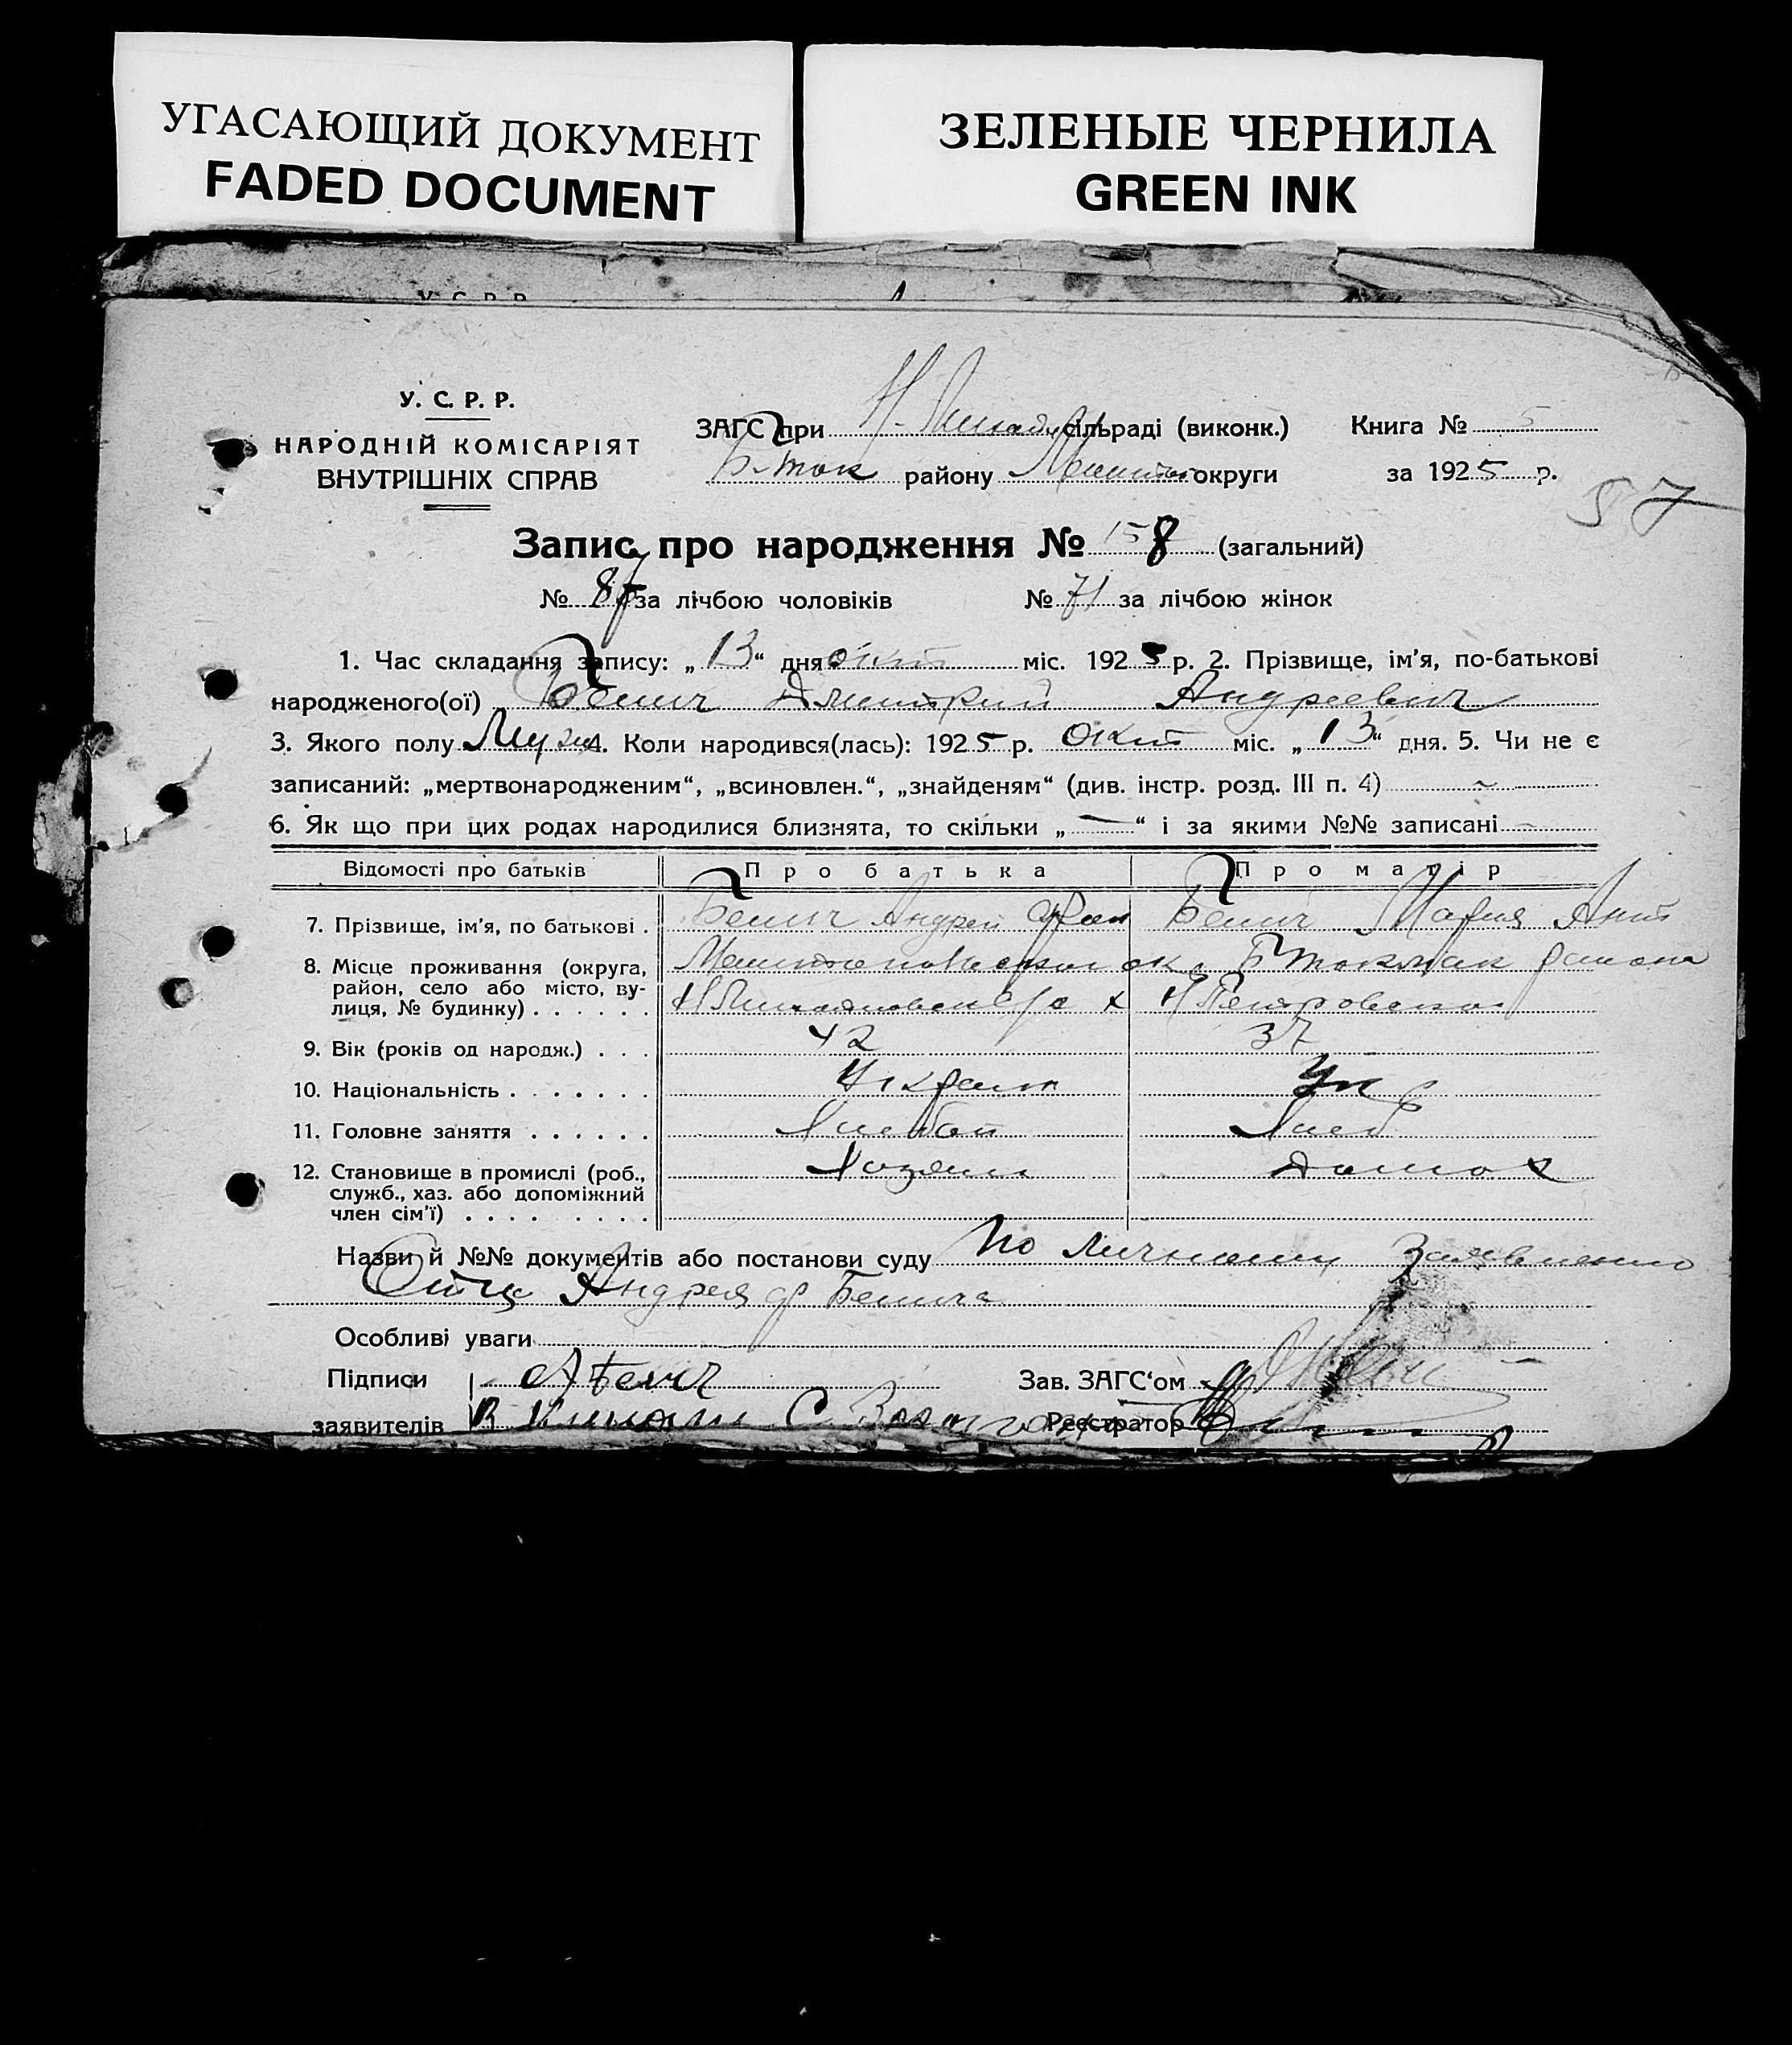 УГАСАЮЩИЙ ДОКУМЕНТ
FADED DOCUMENT
ЗЕЛЕНЫЕ ЧЕРНИЛА
GREEN INK
У. С. Р. Р.
У. С. Р. Р.
НАРОДНІЙ КОМІСАРІЯТ
ВНУТРІШНІХ СПРАВ
ЗАГС при сільраді (виконк.)
Б-ток району округи
Книга № 5
за 1925 р.
57
Запис про народження № 158 (загальний)
№ 87 за лічбою чоловіків № 71 за лічбою жінок
1. Час складання запису: „13“ дня окт міс. 1925 р. 2. Прізвище, ім’я, по-батькові
народженого(ої) Бенич Дмитрий Андреевич
3. Якого полу Муж 4. Коли народився(лась): 1925 р. Окт міс. „13“ дня. 5. Чи не є
записаний: „мертвонародженим“, „всиновлен.“, „знайденям“ (див. інстр. розд. III п. 4)
6. Як що при цих родах народилися близнята, то скільки „—“ і за якими №№ записані
Відомості про батьків Про батька Про матір
7. Прізвище, ім’я, по батькові . Бенич Андрей Бенич Мария Ант
8. Місце проживання (округа, район, село або місто, вулиця, № будинку) . . . . . . ок. Б Токмак района
Н Петровская
9. Вік (років од народж.) . . . 42 37
10. Національність . . . . . . . Украин Ук
11. Головне заняття . . . . . . Хлебоп Хлеб
12. Становище в промислі (роб., служб., хаз. або допоміжний член сім’ї) . . . . . . . . Хозяин Домох
Назви й №№ документів або постанови суду По личному Заявлению
Отца Андрея Ф Бенича
Особливі уваги
Підписи А Бенич Зав. ЗАГС‘ом
заявителів Реєстратор